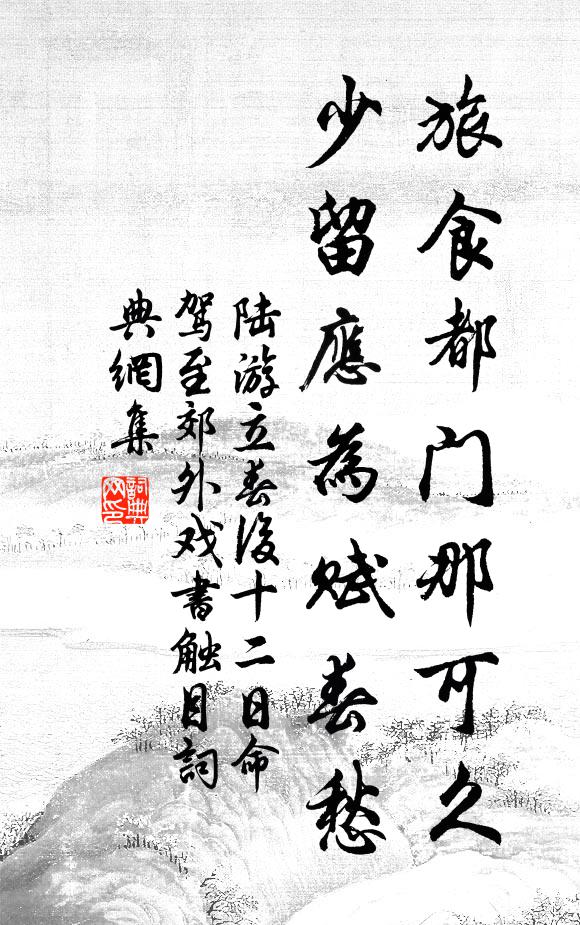 旅食都门那可久
少留應為赋春愁
陆游立春後十二日命
驾至郊外戏書触目詞
典網集
詞典网印